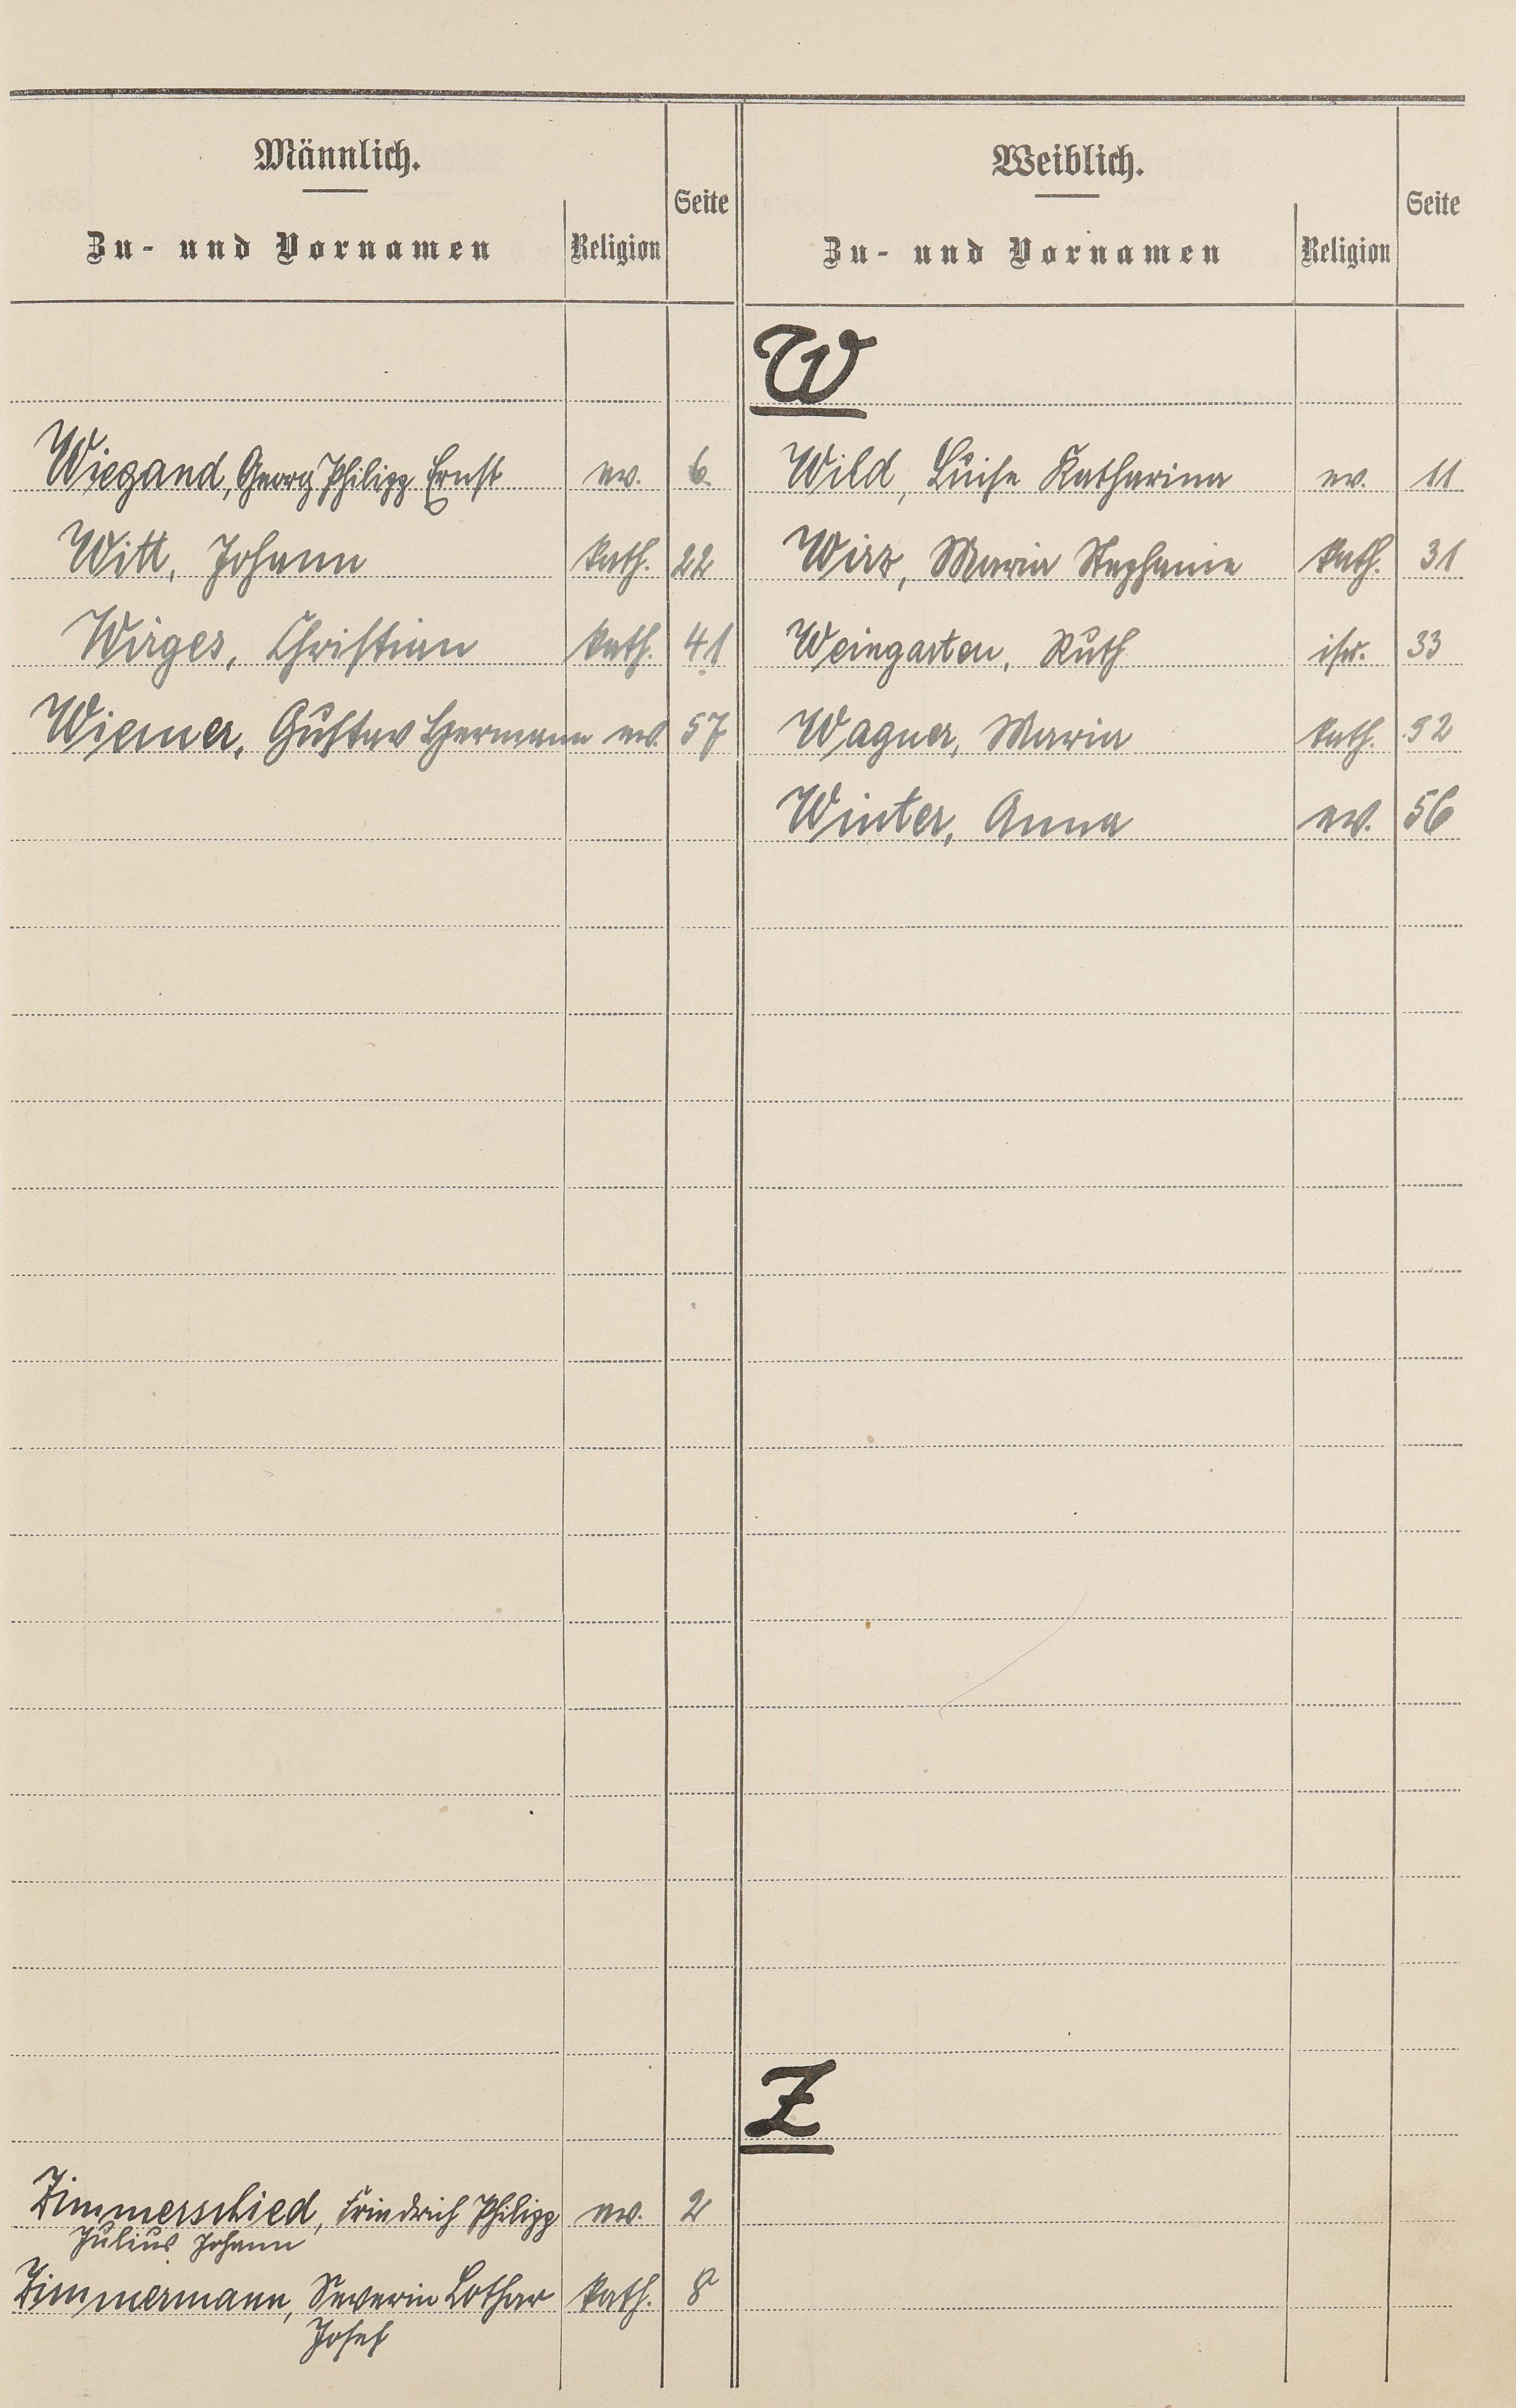 Männlich.
Zu- und Vornamen Religion Seite
Weiblich.
Zu- und Vornamen Religion Seite
W
Wiegand, Georg Philipp Ernst ev. 6
Witt, Johann kath. 22
Wirges, Christian kath. 41
Wiemer, Gustav Hermann ev. 57
Wild, Luise Katharina ev. 11
Wirz, Maria Stephanie kath. 31
Weingarten, Ruth isr. 33
Wagner, Maria kath. 52
Winter, Anna ev. 56
Z
Zimmerschied, Friedrich Philipp ev. 2
Julius Johann
Zimmermann, Severin Lothar kath. 8
Josef